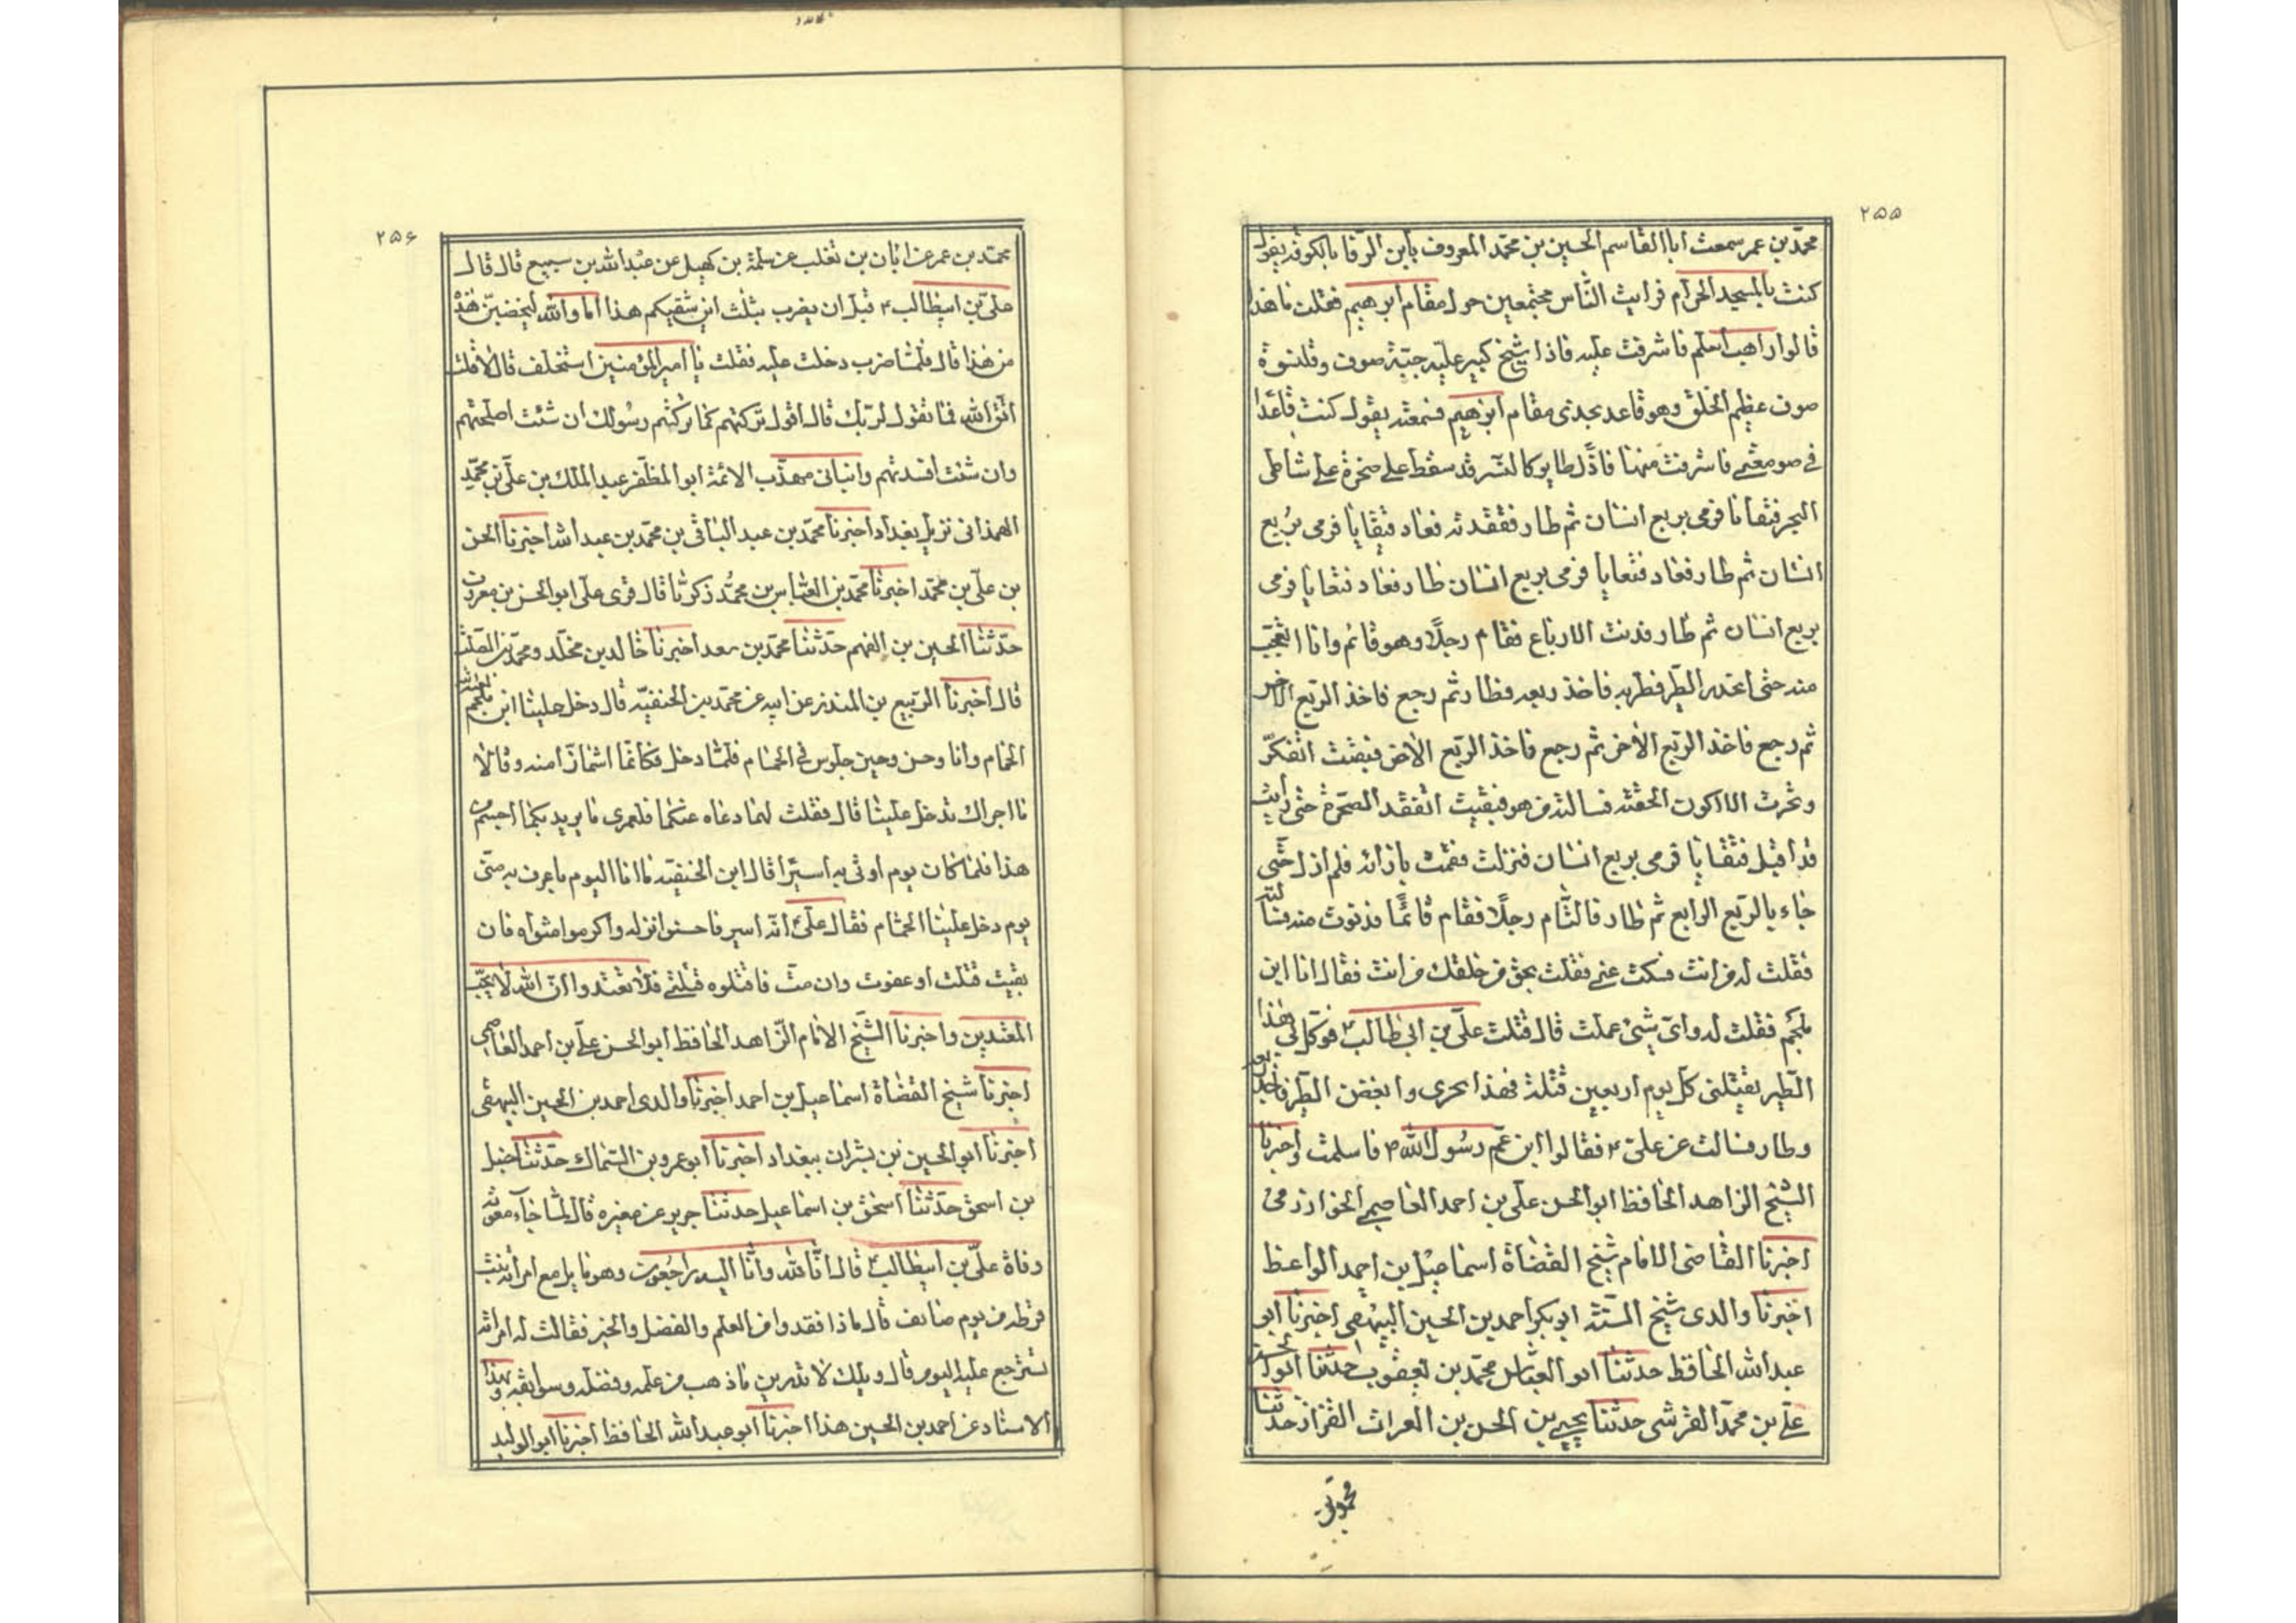 ٢٥٥
محمّد بن عمر سمعت اباالقاسم الحسين بن محمّد المعروف بابن الرّفا بالكوفه يقول
كنت بالمسجد الحرام فرايت النّاس مجتمعين حول مقام ابرهيم فقلت ما هذا
قالوا راهب اسلم فاشرفت عليه فاذا شيخ كبير عليه جبّة صوف و قلنسوة
صوف عظيم الخلق وهو قاعد بحذى مقام ابرهيم فسمعته يقول كنت قاعدا
فى صومعتى فاشرفت منها فاذا طاير كالنّسر قد سقط على صخرة على شاطى
البحر فتقايا فرمى بربع انسان ثم طار ففقدته فعاد فتقايا فرمى بربع
انسان ثم طار فعاد فتقايا فرمى بربع انسان طار فعاد فتقايا فرمى
بربع انسان ثم طار فدنت الارباع فقام رجلًا وهو قائم وانا اتعجّب
منه حتى انحدر الطّير فضربه فاخذ ربعه فطار ثم رجع فاخذ الربع الاخر
ثم رجع فاخذ الربع الاخر ثم رجع فاخذ الربع الاخر فبقيت اتفكّر
وتحسرت الا اكون الحقته فسالته من هو فبقيت اتفقد الصخرة حتى رأيت
قد اقبل فتقايا فرمى بربع انسان فنزلت فقمت بازائه فلم ازل حتّى
جاء بالربع الرابع ثم طار فالتام رجلًا فقام قائمًا فدنوت منه فسألته
فقلت له من انت فسكت عنى فقلت بحق من خلقك من انت فقال انا ابن
ملجم فقلت له واىّ شيئ عملت قال قتلت علىّ بن ابى طالب ٤ فوكّل بى هذا
الطّير يقتلنى كلّ يوم اربعين قتلة فهذا خبرى وانقض الطّير فاخذ ربعه
وطار فسالت عن علىّ ٤ فقالوا ابن عمّ رسول الله ٣ فاسلمت واخبرنا
الشيخ الزاهد الحافظ ابوالحسن علىّ بن احمد العاصمى الخوارزمى
اخبرنا القاضى الامام شيخ القضاة اسماعيل بن احمد الواعظ
اخبرنا والدى شيخ السّنّة ابوبكر احمد بن الحسين البيهقى اخبرنا ابو
عبدالله الحافظ حدثنا ابو العبّاس محمّد بن يعقوب حدثنا ابوالحسن
علىّ بن محمّد القرشى حدثنا يحيى بن الحسن بن الفرات القزاز حدثنا
محمد بن
٢٥۶
محمّد بن عمر عن ابان بن تغلب عن سلمة بن كهيل عن عبدالله بن سبيع قال قال
علىّ بن ابيطالب ٤ قبل ان يضرب بثلث اين شقيكم هذا اما والله ليخضبنّ هذه
من هذا قال فلمّا ضرب دخلت عليه فقلت يا امير المؤمنين استخلف قال لا قلت
اتّق الله فما تقول لربّك قال اقول تركتهم كما تركتهم رسولك ان شئت اصلحتهم
وان شئت افسدتهم وانبانى مهذّب الائمّة ابوالمظفّر عبدالملك بن علىّ بن محمّد
الهمذانى نزيل بغداد اخبرنا محمّد بن عبدالباقى بن محمّد بن عبدالله اخبرنا الحسن
بن علىّ بن محمّد اخبرنا محمّد بن العبّاس بن محمّد زكريّا قال قرى على ابوالحسن بن معروف
حدّثنا الحسين بن الفهم حدّثنا محمّد بن سعد اخبرنا خالد بن مخلّد ومحمّد بن الصلت
قال اخبرنا الربيع بن المنذر عن ابيه عن محمّد بن الحنفيّه قال دخل علينا ابن ملجم
الحمام وانا وحسن وحسين جلوس فى الحمام فلمّا دخل فكانّما اشمازّا منه وقالا
ما اجراك تدخل علينا قال فقلت لهما دعاه عنكما فلعمرى ما يريد بكما احشم من
هذا فلمّا كان يوم اوتى به اسيرًا قال ابن الحنفيّه ما انا اليوم باعرف به منّى
يوم دخل علينا الحمّام فقال علىّ ٤ انّه اسير فاحسنوا نزله واكرموا مثواه فان
بقيت قتلت او عفوت وان متّ فاقتلوه قتلتى فلا تعتدوا انّ الله لا يحبّ
المعتدين واخبرنا الشّيخ الامام الزّاهد الحافظ ابوالحسن علىّ بن احمد العاصمى
اخبرنا شيخ القضاة اسماعيل بن احمد اخبرنا والدى احمد بن الحسين البيهقى
اخبرنا ابوالحسين بن بشران ببغداد اخبرنا ابوعمرو بن السّماك حدّثنا حنبل
بن اسحق حدّثنا اسحق بن اسماعيل حدثنا جرير عن مغيره قال لمّا جاء معوية
وفاة علىّ بن ابيطالب ٤ قال انّا لله وانّا اليه راجعون وهو قايل مع امرأته بنت
قرظه فى يوم صائف قال ماذا فقدوا من العلم والفضل والخير فقالت له امراته
تسترجع عليه اليوم قال ويلك لا تدرين ماذهب من علمه وفضله وسوابقه وبهذا
الاسناد عن احمد بن الحسين هذا اخبرنا ابوعبدالله الحافظ اخبرنا ابوالوليد